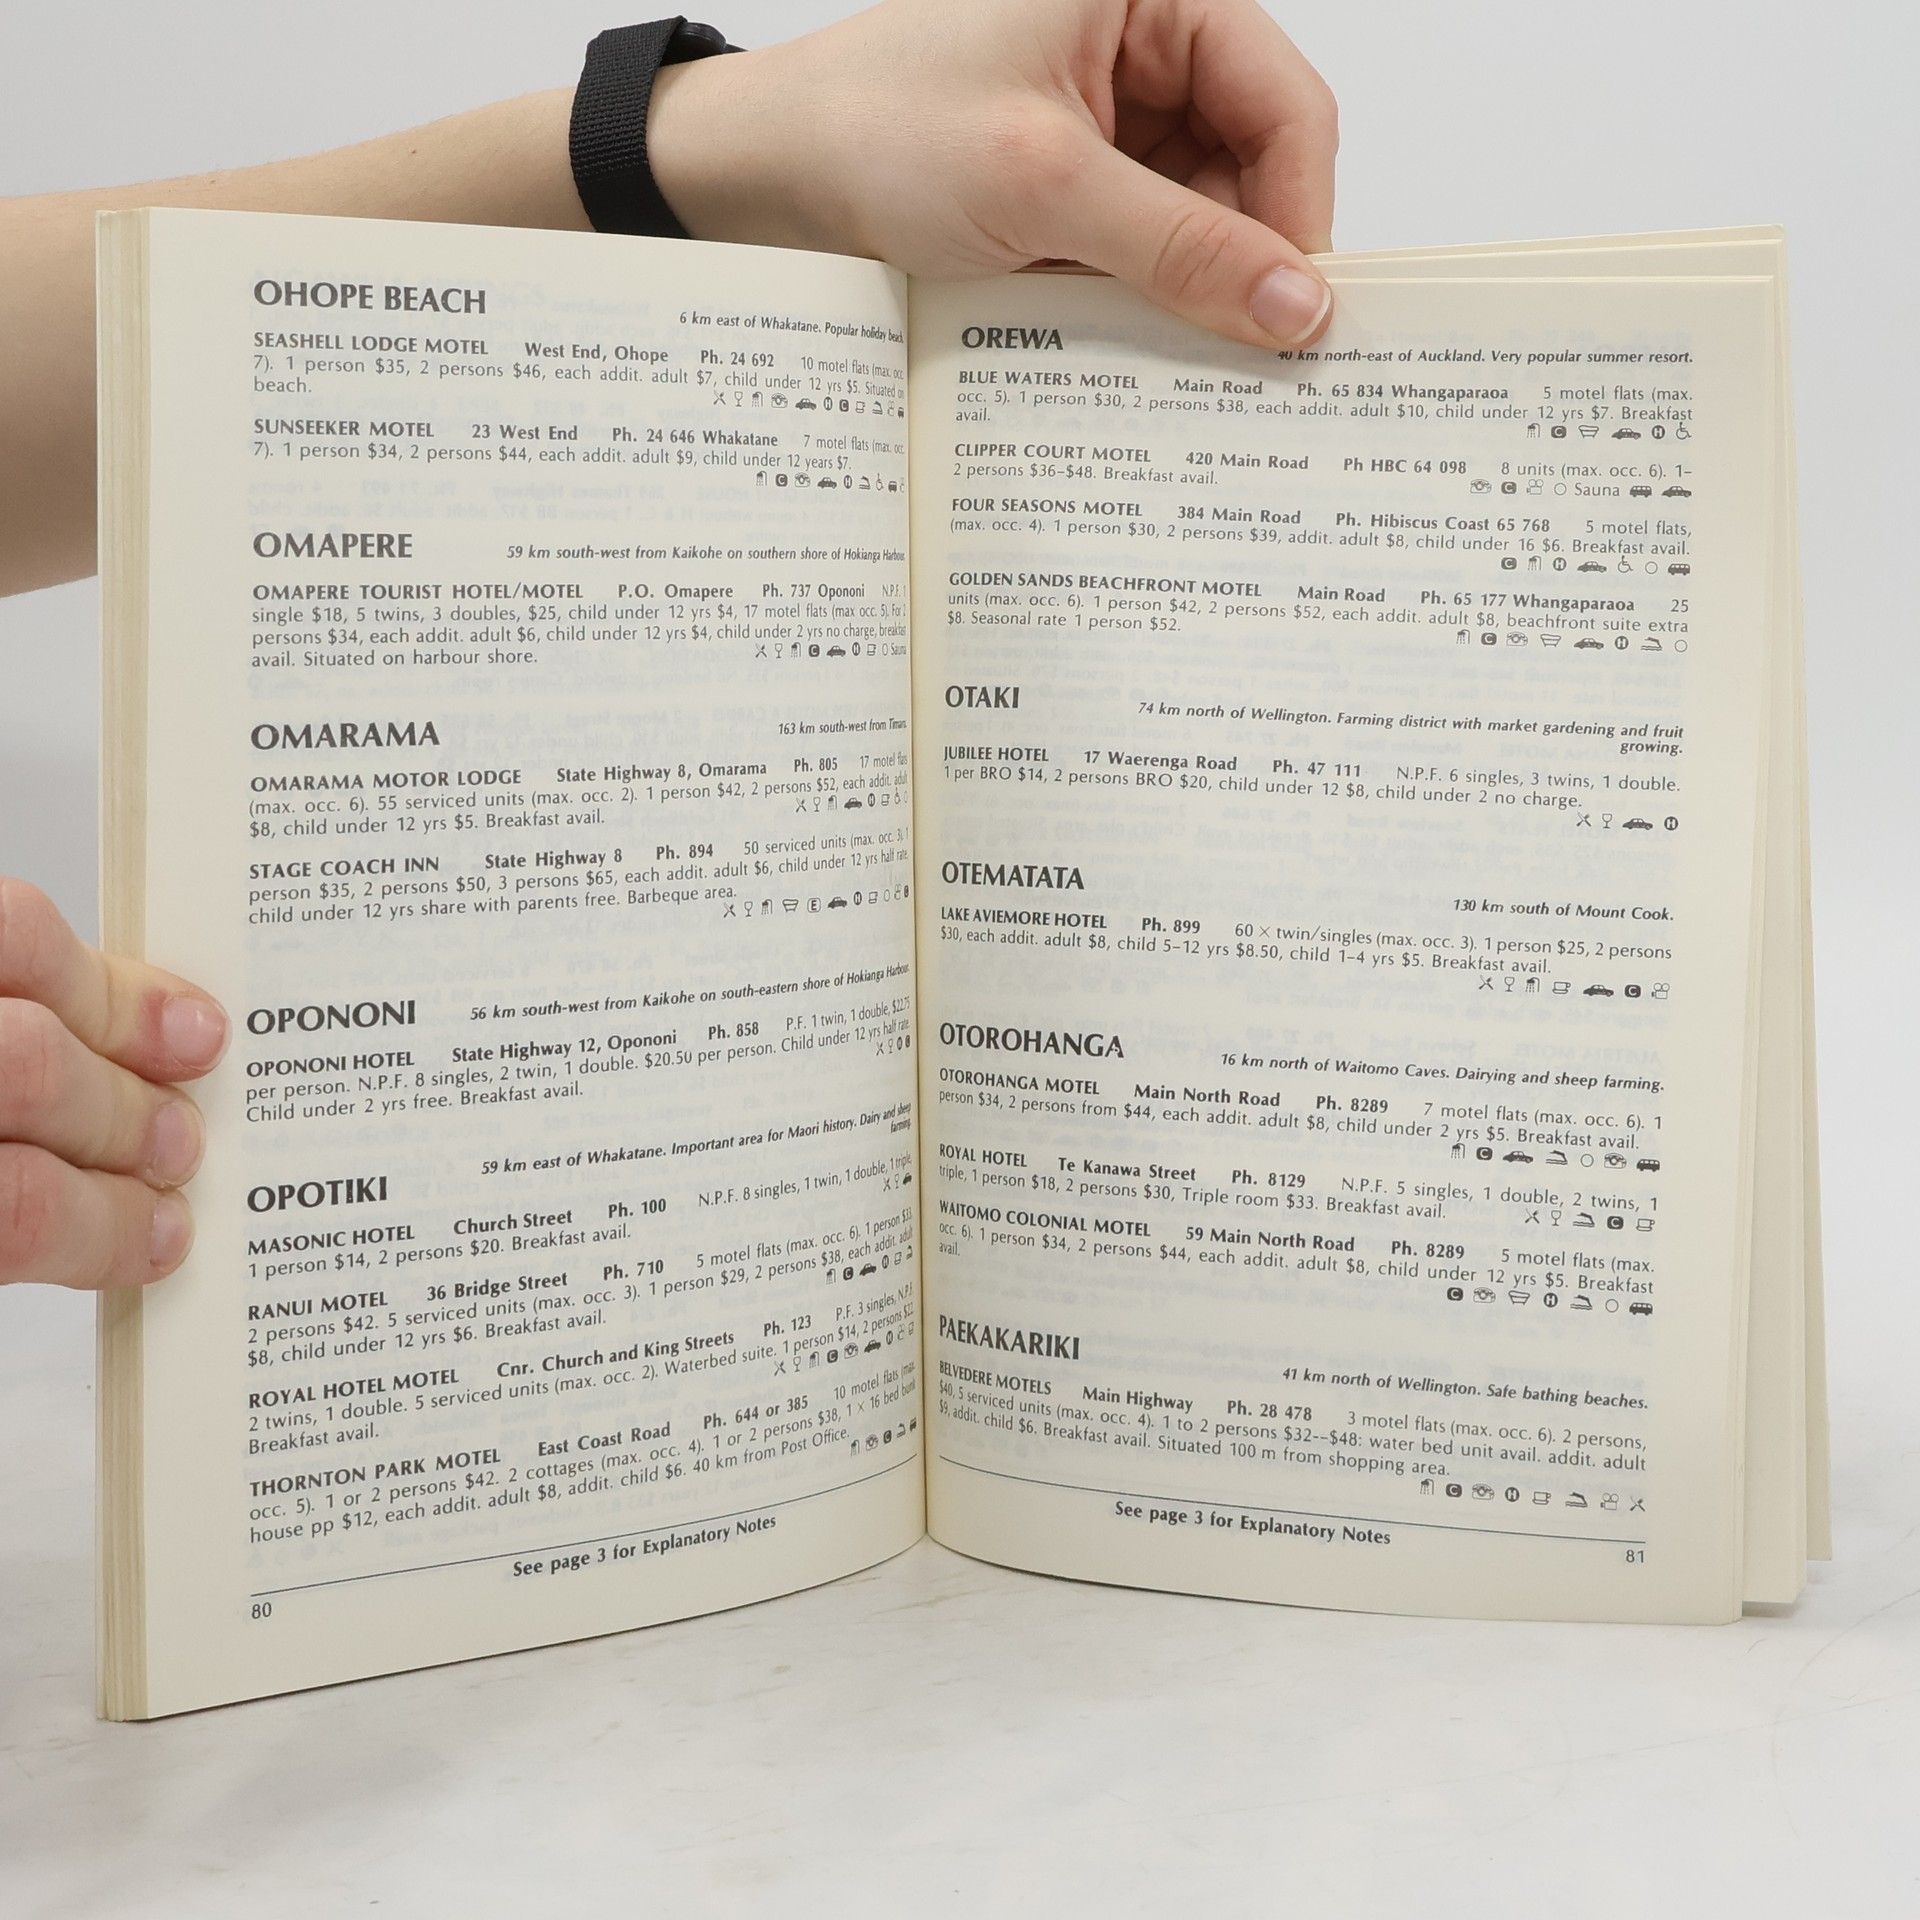 OHOPE BEACH
6 km east of Whakatane. Popular holiday beach.
SEASHELL LODGE MOTEL West End, Ohope Ph. 24 692 10 motel flats (max. occ.
7). 1 person $35, 2 persons $46, each addit. adult $7, child under 12 yrs $5. Situated on
beach.
SUNSEEKER MOTEL 23 West End Ph. 24 646 Whakatane 7 motel flats (max. occ.
7). 1 person $34, 2 persons $44, each addit. adult $9, child under 12 years $7.
OMAPERE
59 km south-west from Kaikohe on southern shore of Hokianga Harbour.
OMAPERE TOURIST HOTEL/MOTEL P.O. Omapere Ph. 737 Opononi N.P.F. 1
single $18, 5 twins, 3 doubles, $25, child under 12 yrs $4, 17 motel flats (max occ. 5). For 2
persons $34, each addit. adult $6, child under 12 yrs $4, child under 2 yrs no charge, breakfast
avail. Situated on harbour shore.
Sauna
OMARAMA
163 km south-west from Timaru.
OMARAMA MOTOR LODGE State Highway 8, Omarama Ph. 805 17 motel flats
(max. occ. 6). 55 serviced units (max. occ. 2). 1 person $42, 2 persons $52, each addit. adult
$8, child under 12 yrs $5. Breakfast avail.
STAGE COACH INN State Highway 8 Ph. 894 50 serviced units (max. occ. 3). 1
person $35, 2 persons $50, 3 persons $65, each addit. adult $6, child under 12 yrs half rate,
child under 12 yrs share with parents free. Barbeque area.
OPONONI
56 km south-west from Kaikohe on south-eastern shore of Hokianga Harbour.
OPONONI HOTEL State Highway 12, Opononi Ph. 858 P.F. 1 twin, 1 double, $22.75
per person. N.P.F. 8 singles, 2 twin, 1 double. $20.50 per person. Child under 12 yrs half rate.
Child under 2 yrs free. Breakfast avail.
59 km east of Whakatane. Important area for Maori history. Dairy and sheep
farming.
OPOTIKI
MASONIC HOTEL Church Street Ph. 100 N.P.F. 8 singles, 1 twin, 1 double, 1 triple,
1 person $14, 2 persons $20. Breakfast avail.
RANUI MOTEL 36 Bridge Street Ph. 710 5 motel flats (max. occ. 6). 1 person $33,
2 persons $42. 5 serviced units (max. occ. 3). 1 person $29, 2 persons $38, each addit. adult
$8, child under 12 yrs $6. Breakfast avail.
ROYAL HOTEL MOTEL Cnr. Church and King Streets Ph. 123 P.F. 3 singles, N.P.F.
2 twins, 1 double. 5 serviced units (max. occ. 2). Waterbed suite. 1 person $14, 2 persons $22.
Breakfast avail.
THORNTON PARK MOTEL East Coast Road Ph. 644 or 385 10 motel flats (max.
occ. 5). 1 or 2 persons $42. 2 cottages (max. occ. 4). 1 or 2 persons $38, 1 × 16 bed bunk
house pp $12, each addit. adult $8, addit. child $6. 40 km from Post Office.
See page 3 for Explanatory Notes
80
OREWA
40 km north-east of Auckland. Very popular summer resort.
BLUE WATERS MOTEL Main Road Ph. 65 834 Whangaparaoa 5 motel flats (max.
occ. 5). 1 person $30, 2 persons $38, each addit. adult $10, child under 12 yrs $7. Breakfast
avail.
CLIPPER COURT MOTEL 420 Main Road Ph HBC 64 098 8 units (max. occ. 6). 1–
2 persons $36–$48. Breakfast avail.
Sauna
FOUR SEASONS MOTEL 384 Main Road Ph. Hibiscus Coast 65 768 5 motel flats,
(max. occ. 4). 1 person $30, 2 persons $39, addit. adult $8, child under 16 $6. Breakfast avail.
GOLDEN SANDS BEACHFRONT MOTEL Main Road Ph. 65 177 Whangaparaoa 25
units (max. occ. 6). 1 person $42, 2 persons $52, each addit. adult $8, beachfront suite extra
$8. Seasonal rate 1 person $52.
OTAKI
74 km north of Wellington. Farming district with market gardening and fruit
growing.
JUBILEE HOTEL 17 Waerenga Road Ph. 47 111 N.P.F. 6 singles, 3 twins, 1 double.
1 per BRO $14, 2 persons BRO $20, child under 12 $8, child under 2 no charge.
OTEMATATA
130 km south of Mount Cook.
LAKE AVIEMORE HOTEL Ph. 899 60 × twin/singles (max. occ. 3). 1 person $25, 2 persons
$30, each addit. adult $8, child 5–12 yrs $8.50, child 1–4 yrs $5. Breakfast avail.
OTOROHANGA
16 km north of Waitomo Caves. Dairying and sheep farming.
OTOROHANGA MOTEL Main North Road Ph. 8289 7 motel flats (max. occ. 6). 1
person $34, 2 persons from $44, each addit. adult $8, child under 2 yrs $5. Breakfast avail.
ROYAL HOTEL Te Kanawa Street Ph. 8129 N.P.F. 5 singles, 1 double, 2 twins, 1
triple, 1 person $18, 2 persons $30, Triple room $33. Breakfast avail.
WAITOMO COLONIAL MOTEL 59 Main North Road Ph. 8289 5 motel flats (max.
occ. 6). 1 person $34, 2 persons $44, each addit. adult $8, child under 12 yrs $5. Breakfast
avail.
PAEKAKARIKI
41 km north of Wellington. Safe bathing beaches.
BELVEDERE MOTELS Main Highway Ph. 28 478 3 motel flats (max. occ. 6). 2 persons,
$40, 5 serviced units (max. occ. 4). 1 to 2 persons $32--$48: water bed unit avail. addit. adult
$9, addit. child $6. Breakfast avail. Situated 100 m from shopping area.
See page 3 for Explanatory Notes
81